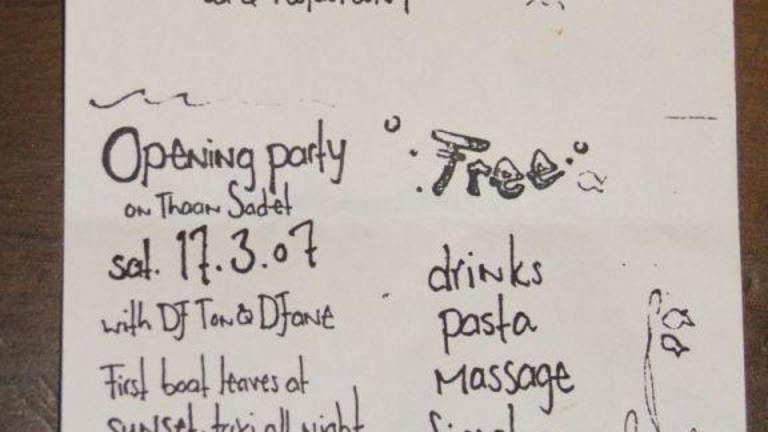 Opening party
on Thaan Sadet
sat. 17.3.07
with DJ Ton & DJane
First boat leaves at
sunset, taxi all night
Free
drinks
pasta
Massage